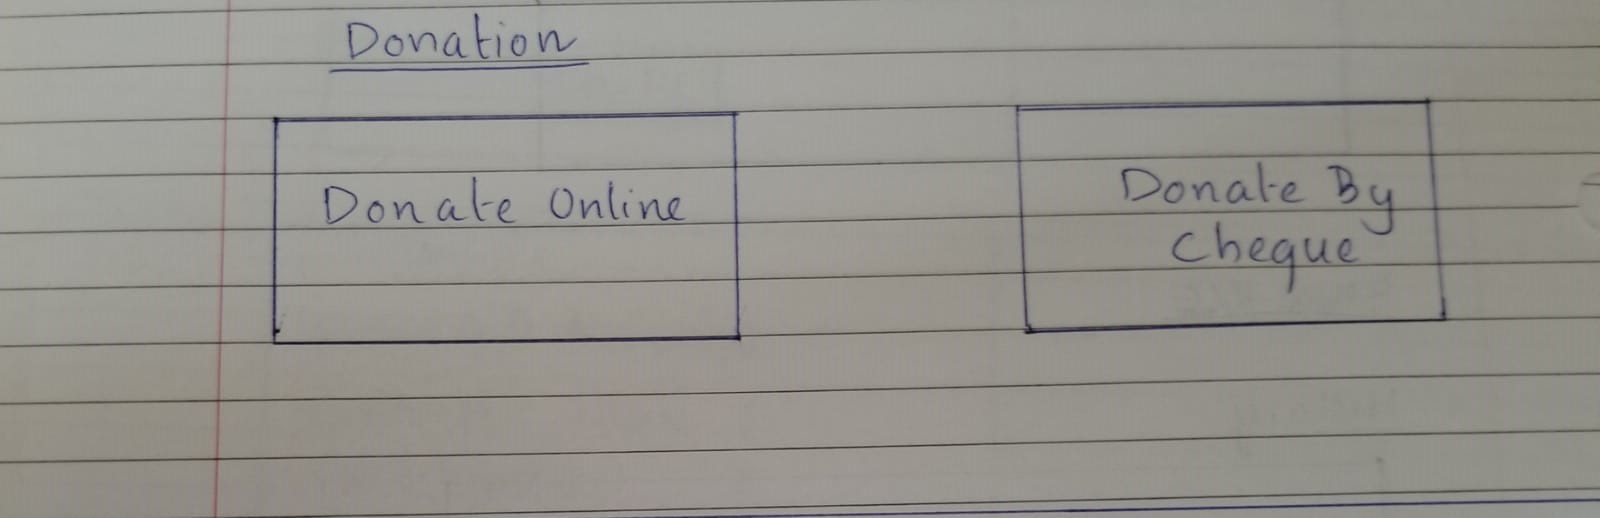 Donation
Donate Online
Donate By
Cheque